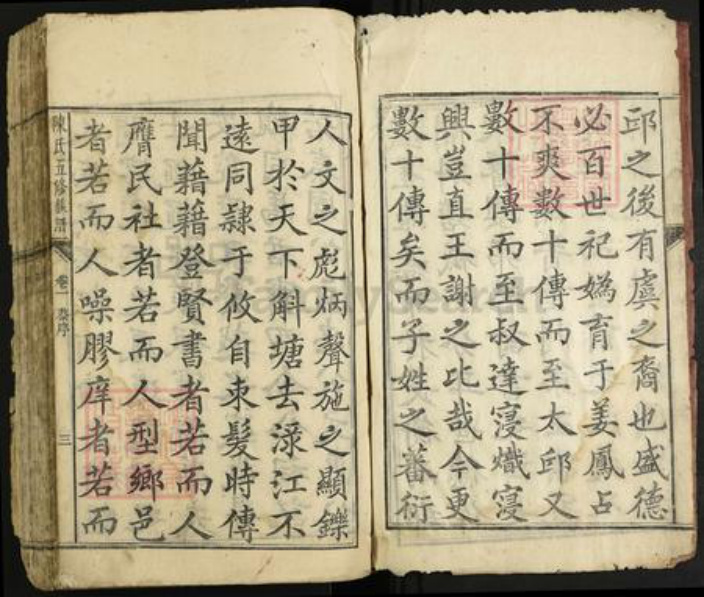 邱之後有虞之裔也盛德
必百世祀媯育于姜鳳占
不爽數十傳而至太邱又
數十傳而至叔達寖熾寖
興豈直王謝之比哉今更
數十傳矣而子姓之蕃衍
人文之彪炳聲施之顯鑠
甲於天下斛塘去淥江不
遠同隷于攸自束髮時傳
聞藉藉登賢書者若而人
膺民社者若而人型鄉邑
者若而人噪膠庠者若而
陳氏五修族譜 卷一 序 三